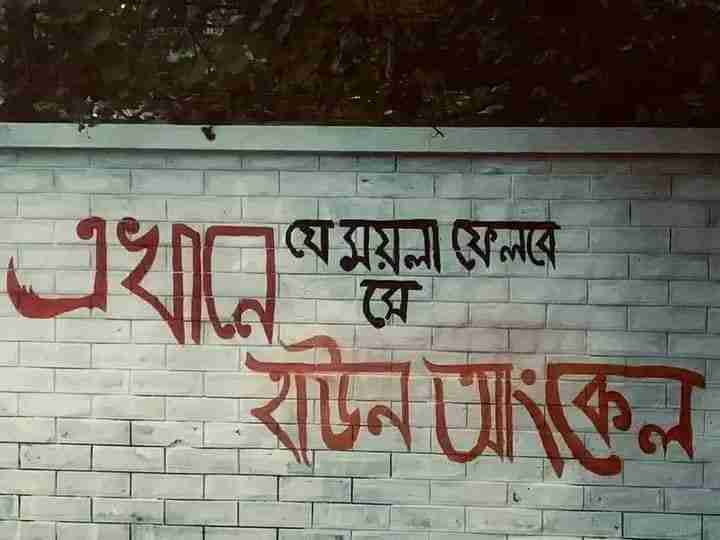 এখানে যে ময়লা ফেলবে
সে
হাউন আংকেল